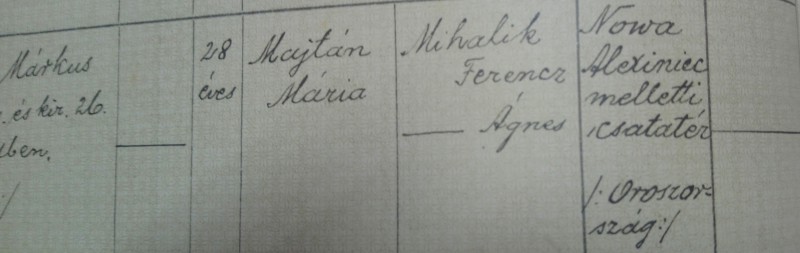 Márkus
és kir. 26.
ben.
:/
28
éves
Majtán
Mária
Mihalik
Ferencz
— Ágnes
Nowa
Alexiniec
melletti
csatatér
/: Oroszor-
szág :/